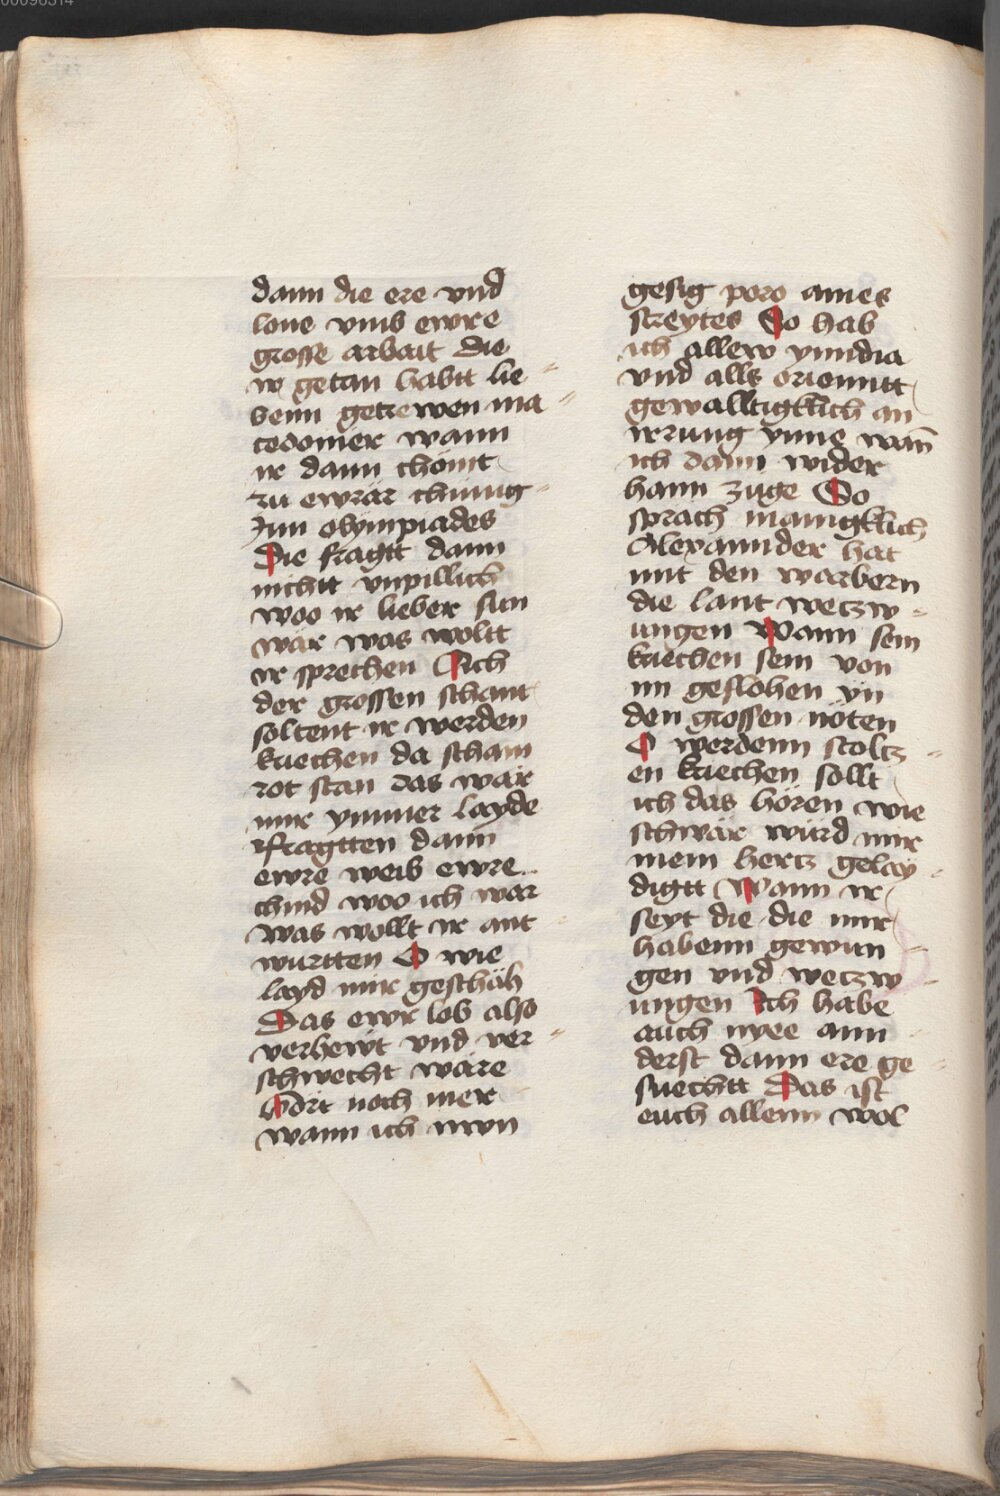 dann die ere vnd
lone vmb ewre
grosse arbait die
ir getan habtt lie
benn getrewen ma
cedonier wann
ir dann chömt
zu ewrär chünig
Inn olympiades
Die fragtt dann
nichtt vnpillich
woo ir lieber sun
wär was woltt
ir sprechen Sich
der grossen schant
soltent ir werden
kriechen da scham
rot stan das wär
mir ymmer layde
Fragtten dann
ewre weib ewre
chind woo ich wär
was wollt ir ant
wurtten O wie
layd mir geschäh
Das ewr lob also
verhewt vnd ver
schwecht wäre
Hört noch mer
wann ich nwn
gesig poro aines
streytes So hab
ich allew yndia
vnd alls orienntt
gewalltigklich an
irrung ynne wan̄
ich dann wider
hann züge So
sprach mänigklich
Alexannder hat
mit den warbern
die lant wetzw
ungen Wann sein
kriechen sein von
im geflohen yn
den grossen nöten
O werdenn stoltz
en kriechen sollt
ich das hören wie
schwär würd mir
mein hertz gelay
digtt Wann ir
seyt die die mir
habenn gewun
gen vnd wetzw
ungen Ich habe
auch nyee ann
derst dann ere ge
suechtt Das ist
euch allenn wol